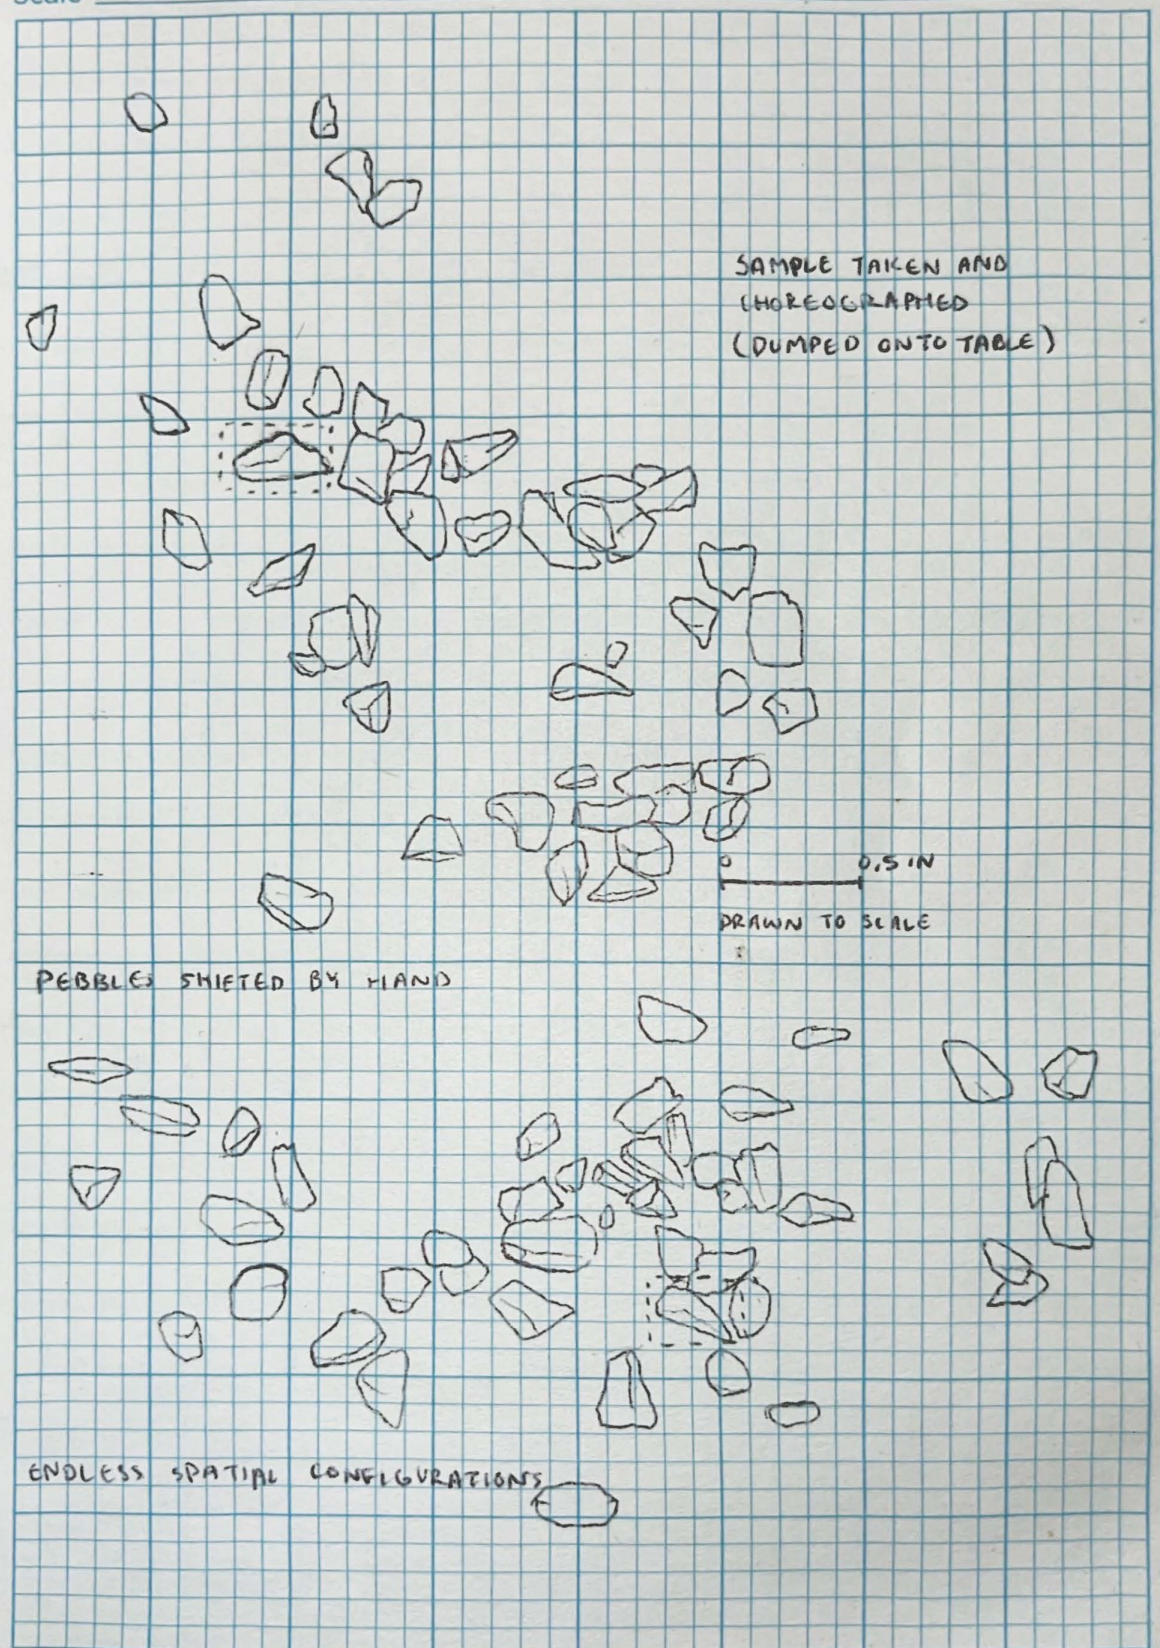 Scale
SAMPLE TAKEN AND
CHOREOGRAPHED
(DUMPED ONTO TABLE)
0 0.5 IN
DRAWN TO SCALE
PEBBLES SHIFTED BY HAND
ENDLESS SPATIAL CONFIGURATIONS